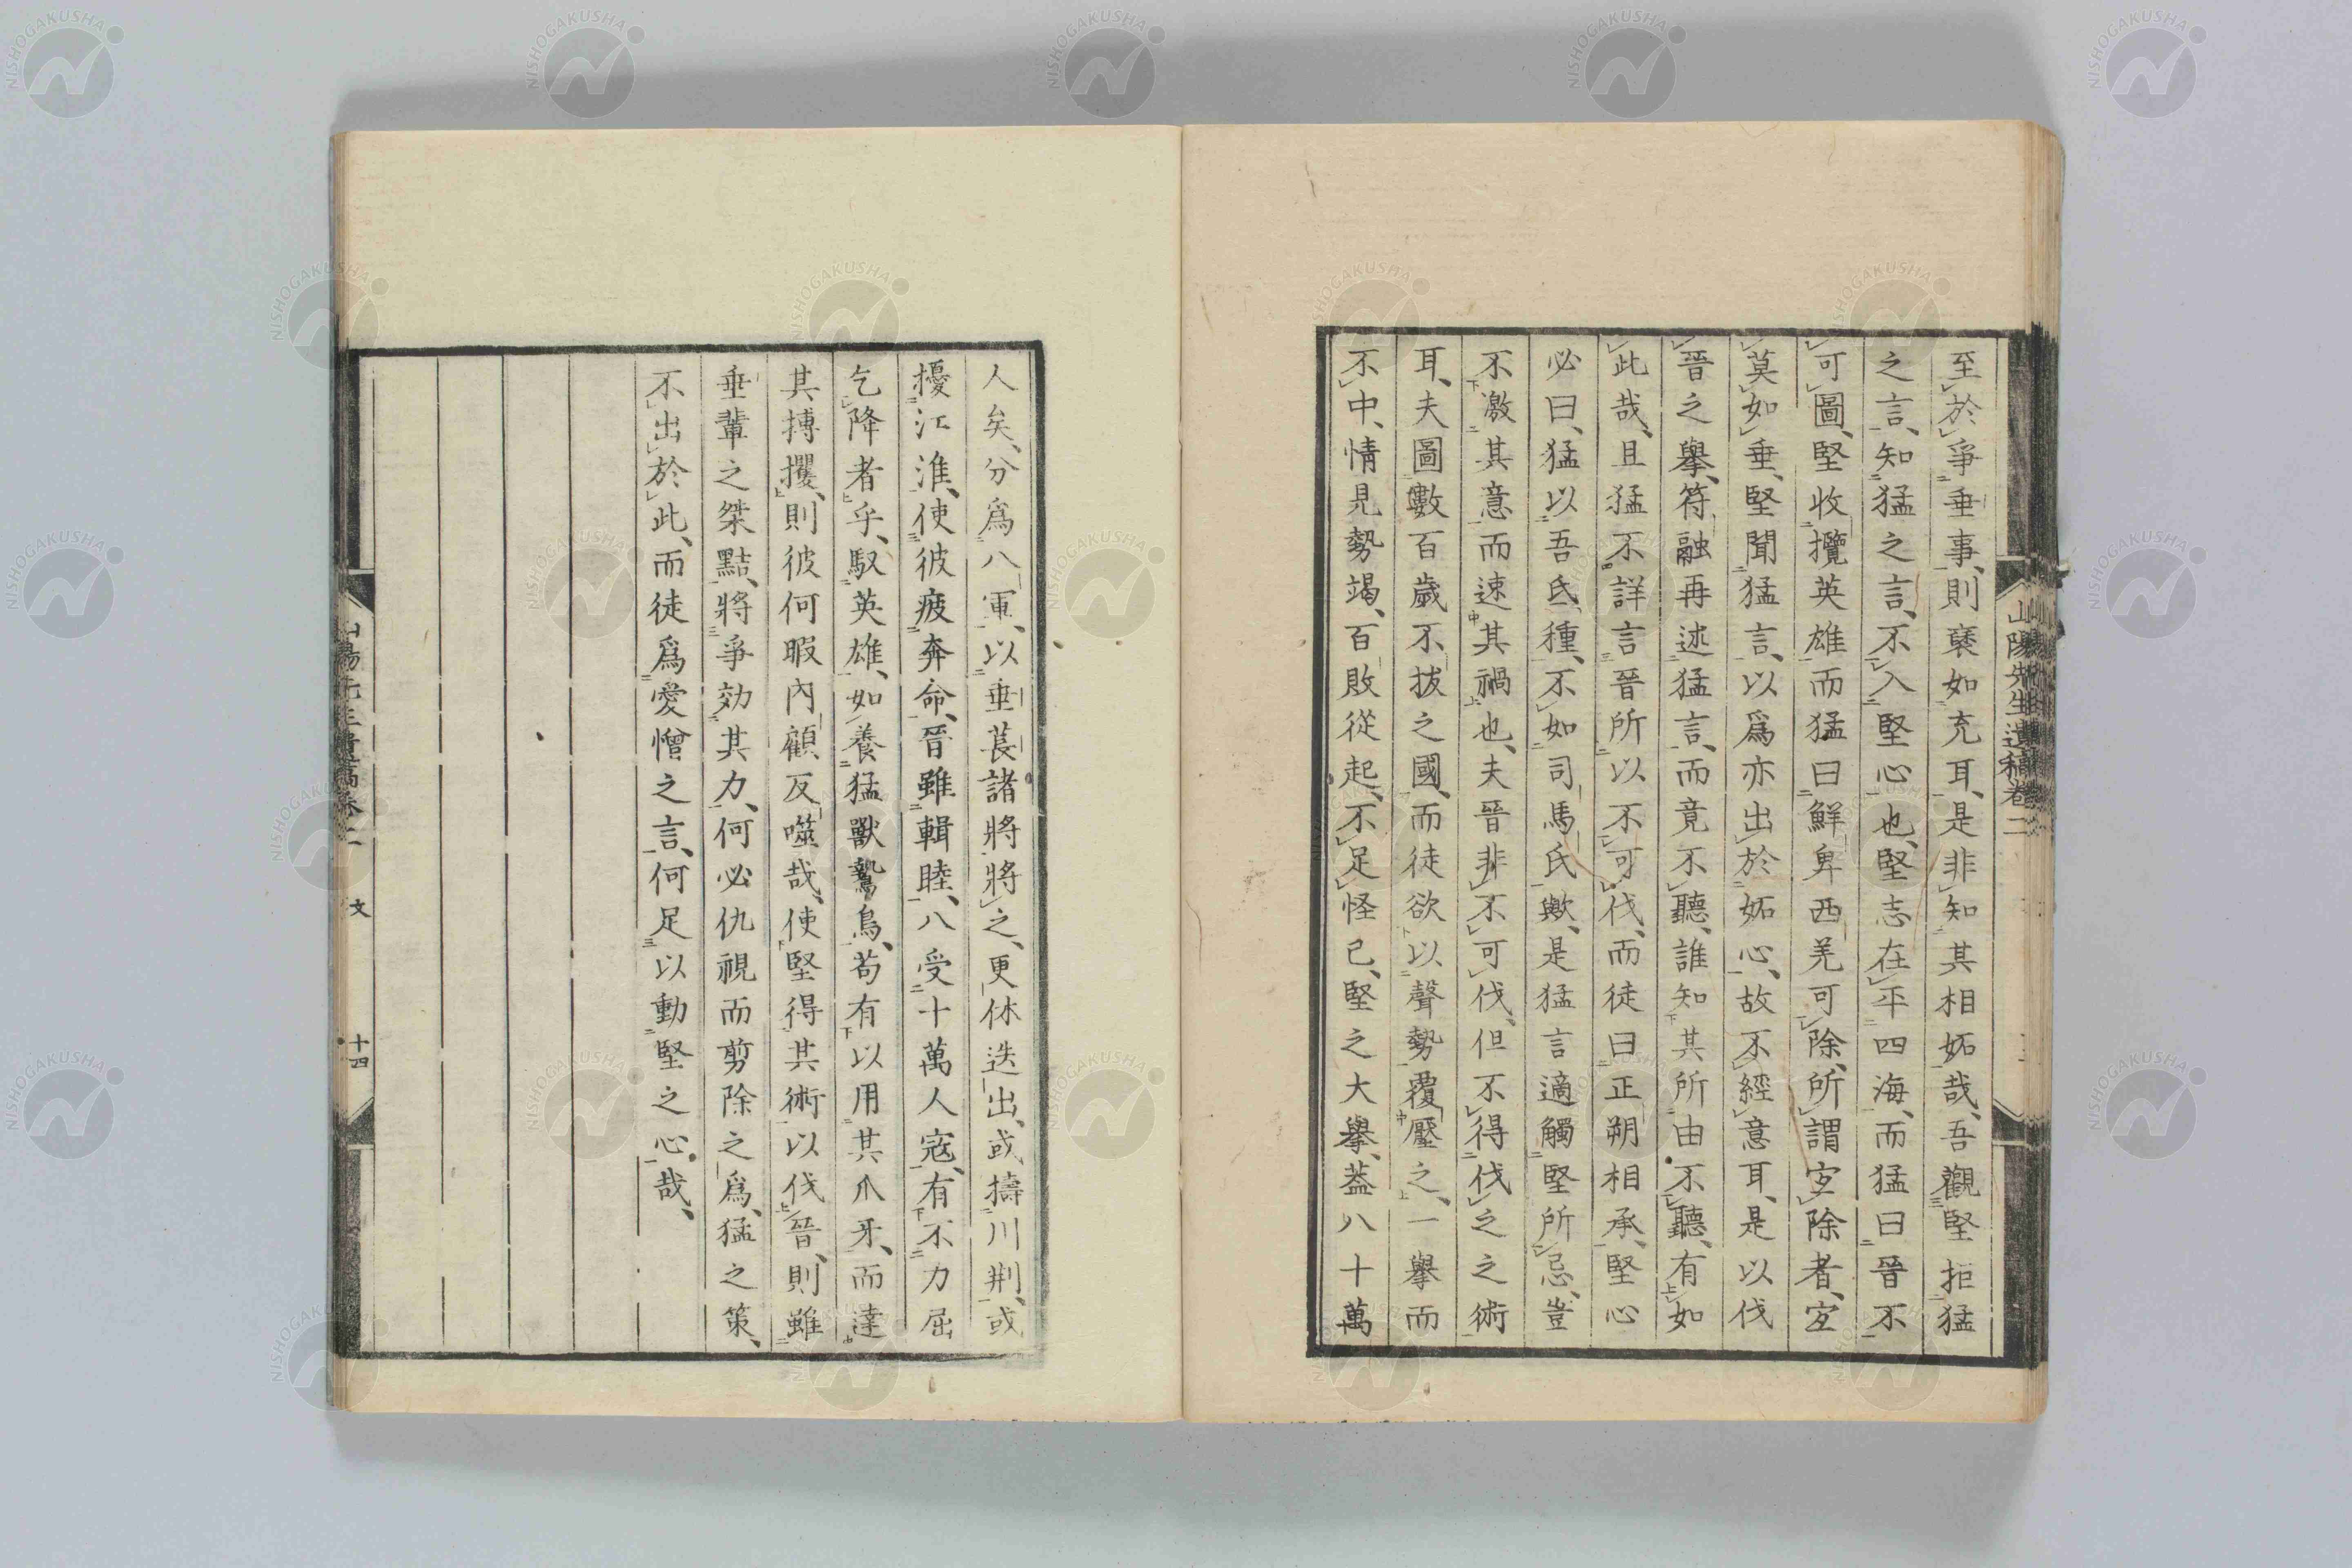 山陽先生遺稿卷二
至於爭垂事、則裦如充耳、是非知其相妬哉、吾觀堅拒猛
之言、知猛之言、不入堅心也、堅志在平四海、而猛曰晉不
可圖、堅收攬英雄而猛曰鮮卑西羌可除、所謂宐除者、宐
莫如垂、堅聞猛言、以爲亦出於妬心、故不經意耳、是以伐
晉之擧、符融再述猛言、而竟不聽、誰知其所由不聽、有如
此哉、且猛不詳言晉所以不可伐、而徒曰正朔相承、堅心
必曰、猛以吾氐種、不如司馬氏歟、是猛言適觸堅所忌、豈
不激其意而速其禍也、夫晉非不可伐、但不得伐之之術
耳、夫圖數百歲不拔之國、而徒欲以聲勢覆壓之、一擧而
不中、情見勢竭、百敗從起、不足怪已、堅之大擧、葢八十萬
人矣、分爲八軍、以垂萇諸將將之、更休迭出、或擣川荆、或
擾江淮、使彼疲奔命、晉雖輯睦、八受十萬人寇、有不力屈
乞降者乎、馭英雄、如養猛獸鷙鳥、苟有以用其爪牙、而達
其搏攫、則彼何暇內顧反噬哉、使堅得其術以伐晉、則雖
垂輩之桀黠、將爭効其力、何必仇視而剪除之爲、猛之策、
不出於此、而徒爲愛憎之言、何足以動堅之心哉、
山陽先生遺稿卷二 文 十四
NISHOGAKUSHA